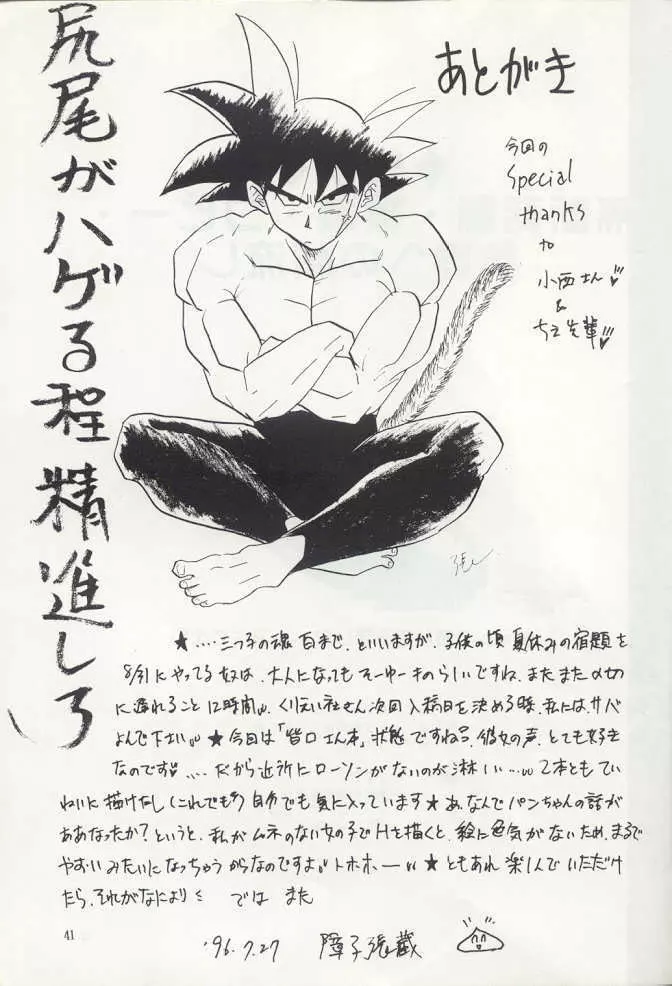 尻尾がハゲる程精進しろ
あとがき
今回の
Special
thanks
to
小西さん
&
先輩
★‥‥三つ子の魂百まで、といいますが、子供の頃夏休みの宿題を
8/31にやってる奴は、大人になってもそーゆーものらしいですね、またまた〆切
に遅れること12時間。くりえい社さん次回入稿日を決める時、私には、サバ
よんで下さい。★今回は「皆口さん本」状態ですね。彼女の声、とても好き
なのです‥‥だから近所にローソンがないのが淋しい…。2本ともてい
ねいに描けたし(これでも)自分でも気に入っています★あ、なんでパンちゃんの話が
ああなったか?というと、私がムネのない女の子でHを描くと、絵に色気がないため、まるで
やおいみたいになっちゃうからなのですよ。トホホー ★ともあれ楽しんでいただけ
たら、それがなにより では また
41
'96.7.27 障子張蔵